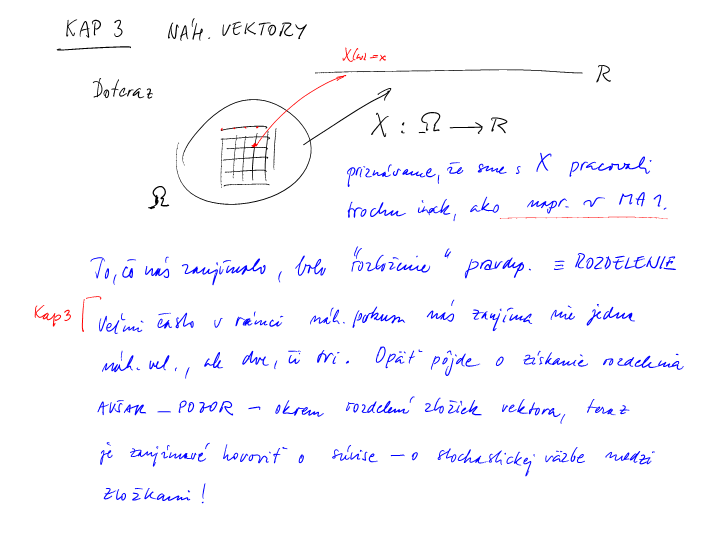 KAP 3 NÁH. VEKTORY
X(ω) = x
R
Doteraz
X : Ω → R
Ω
priznávame, že sme s X pracovali
trochu inak, ako napr. v MA1.
To, čo nás zaujímalo, bolo "rozloženie" pravdep. ≡ ROZDELENIE
Kap 3
Veľmi často v rámci náh. pokusu nás zaujíma nie jedna
náh. vel., ale dve, či tri. Opäť pôjde o získanie rozdelenia
AVŠAK – POZOR – okrem rozdelení zložiek vektora, teraz
je zaujímavé hovoriť o súvise – o stochastickej väzbe medzi
zložkami!